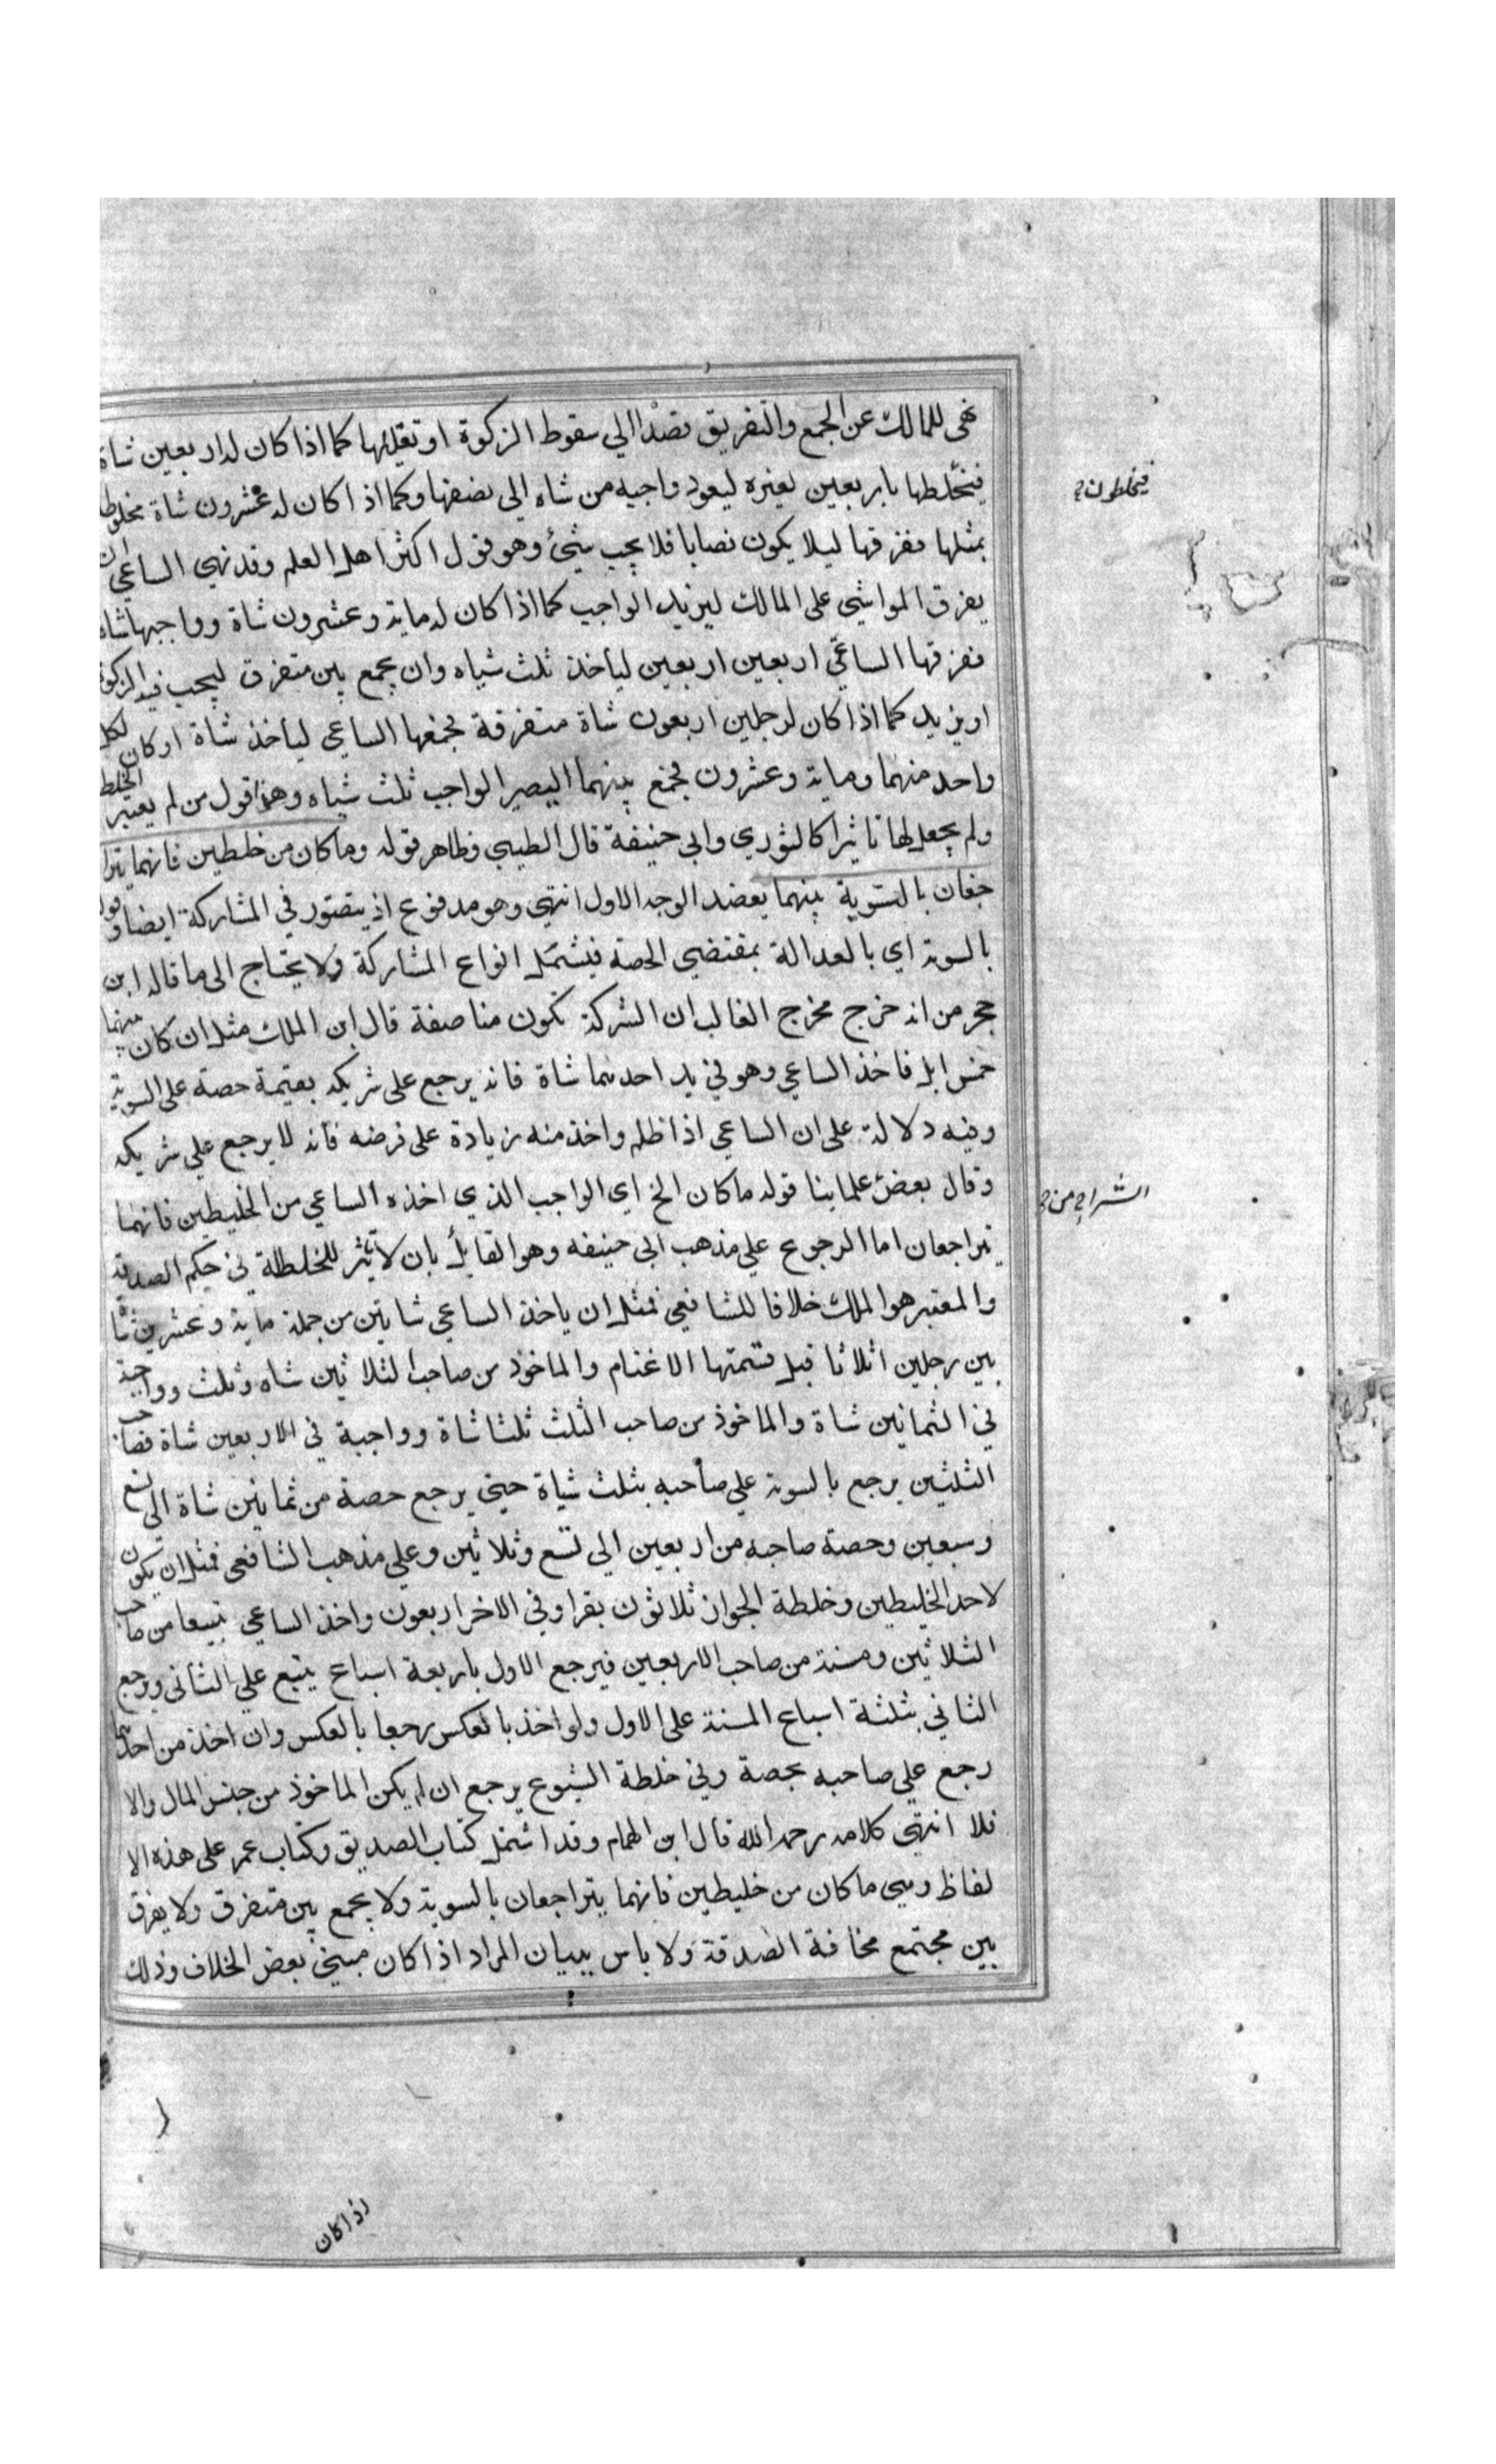 نهى للمالك عن الجمع والتفريق قصدا الي سقوط الزكوة او تقليلها كما اذا كان له اربعين شاة
فيخلطها باربعين لغيره ليعود واجبه من شاه الي نصفها وكما اذا كان له عشرون شاة مخلوطة
بمثلها ففرقها ليلا يكون نصابا فلا يجب شئ وهو قول اكثر اهل العلم وقد نهي الساعي ان
يفرق المواشي على المالك ليزيد الواجب كما اذا كان له ماية وعشرون شاة وواجبها شاه
ففرقها الساعي اربعين اربعين لياخذ ثلث شياه وان يجمع بين متفرق ليجب فيه الزكوة
او يزيد كما اذا كان لرجلين اربعون شاة متفرقة فجمعها الساعي لياخذ شاة او كان لكل
واحد منهما وماية وعشرون فجمع بينهما ليصير الواجب ثلث شياه وهذا قول من لم يعتبر الخلط
ولم يجعل لها تاثيرا كالثوري وابي حنيفة قال الطيبي وظاهر قوله وما كان من خلطين فانهما يترا
جعان بالتسوية بينهما يعضد الوجه الاول انتهي وهو مدفوع اذ يتصور في المشاركة ايضا وقوله
بالسوية اي بالعدالة بمقتضي الحصة فيشتمل انواع المشاركة ولا يحتاج الى ما قاله ابن
حجر من انه خرج مخرج الغالب ان الشركة تكون مناصفة قال ابن الملك مثل ان كان بينهما
خمس ابل فاخذ الساعي وهو في يد احدهما شاة فانه يرجع على شريكه بقيمة حصة على السوية
وفيه دلالة على ان الساعي اذا ظلم واخذ منه زيادة على فرضه فانه لا يرجع علي شريكه
وقال بعض علماينا قوله ما كان الخ اي الواجب الذي اخذه الساعي من الخليطين فانهما
يتراجعان اما الرجوع علي مذهب ابي حنيفه وهو القايل بان لا تاثير للخلطة في حكم الصدقة
والمعتبر هو الملك خلافا للشافعي فمثل ان ياخذ الساعي شاتين من جملة ماية وعشرين شاة
بين رجلين اثلاثا قبل قسمتها الاغنام والماخوذ من صاحب الثلاثين شاه وثلث وواجبة
في الثمانين شاة والماخوذ من صاحب الثلث ثلثا شاة وواجبة في الاربعين شاة فصاحب
الثلثين يرجع بالسوية علي صاحبه بثلث شياة حتي يرجع حصة من ثمانين شاة الى تسع
وسبعين وحصة صاحبه من اربعين الي تسع وثلاثين وعلي مذهب الشافعي فمثل ان يكون
لاحد الخليطين وخلطة الجوار ثلاثون بقرا وفي الاخر اربعون واخذ الساعي تبيعا من صاحب
الثلاثين ومسنة من صاحب الاربعين فيرجع الاول باربعة اسباع يتبع علي الثاني ويرجع
الثاني بثلثة اسباع المسنة على الاول ولو اخذ بالعكس رجعا بالعكس وان اخذ من احدهما
رجع علي صاحبه بحصة وفي خلطة الشيوع يرجع ان لم يكن الماخوذ من جنس المال والا
فلا انتهي كلامه رحمه الله قال ابن الهمام وقد اشتمل كتاب الصديق وكتاب عمر على هذه الا
لفاظ وهي ما كان من خليطين فانهما يتراجعان بالسوية ولا يجمع بين متفرق ولا يفرق
بين مجتمع مخافة الصدقة ولا باس ببيان المراد اذا كان مبني بعض الخلاف وذلك
فيخلطون
من
اذا كان